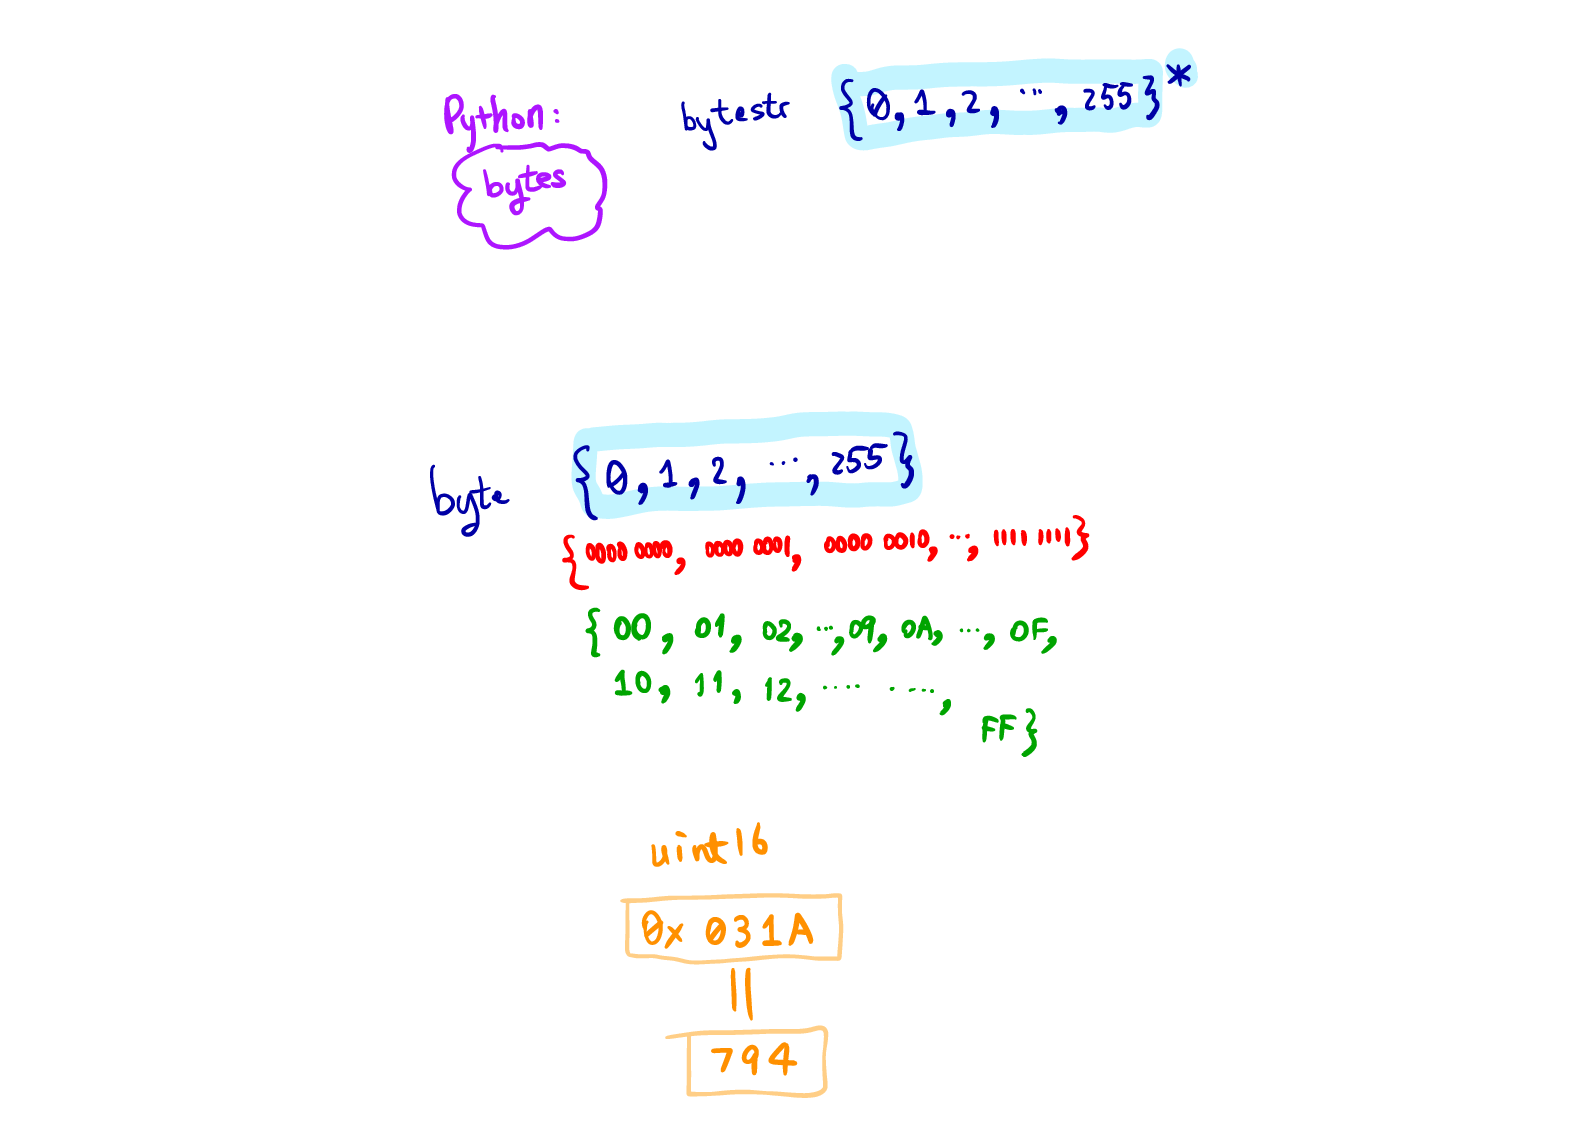 Python:
bytes
bytestr {0, 1, 2, ..., 255}*
byte {0, 1, 2, ..., 255}
{0000 0000, 0000 0001, 0000 0010, ..., 1111 1111}
{00, 01, 02, ..., 09, 0A, ..., 0F,
10, 11, 12, ..... ....,
FF}
uint16
0x 031A
||
794